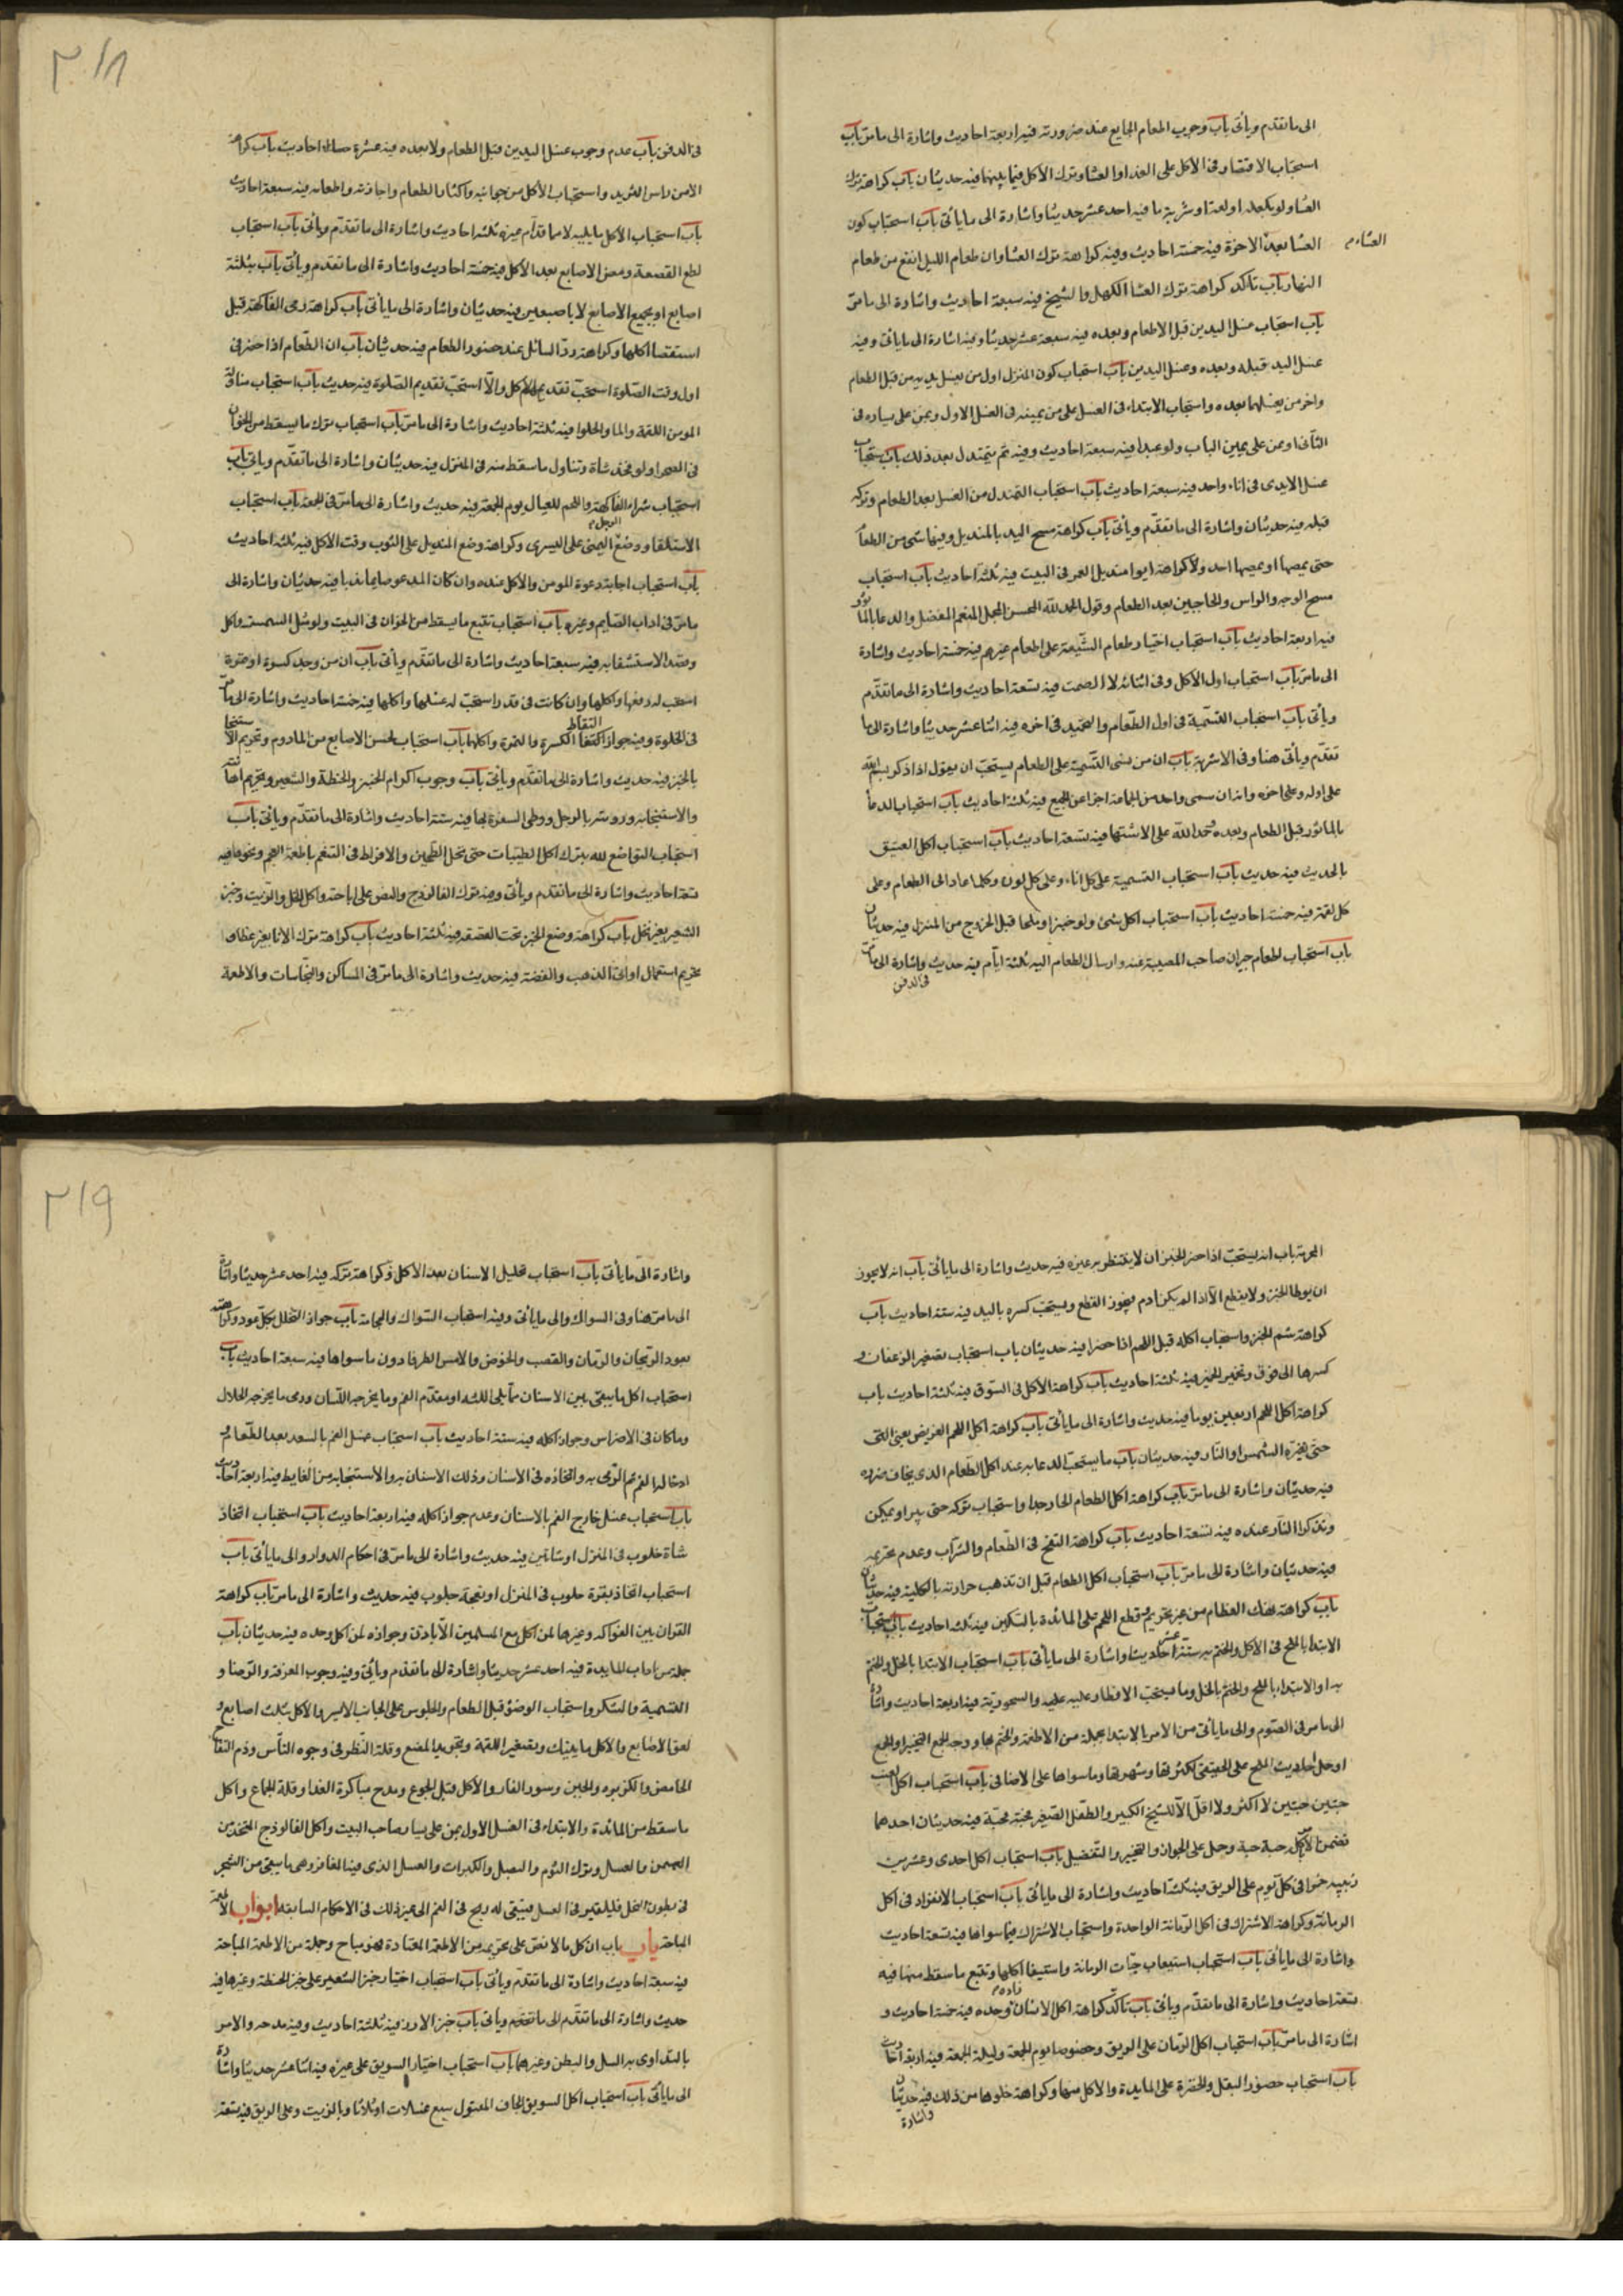 الى ما تقدّم ويأتى باب وجوب اطعام الجايع عند ضرورته فيه اربعة احاديث واشارة الى ما مرّ باب
استحباب الاقتصار فى الاكل على الغدا والعشا وترك الاكل فيما بينهما فيه حديثان باب كراهة ترك
العشا ولو بكعكة او لقمة او شربة ما فيه احد عشر حديثا واشارة الى ما يأتى باب استحباب كون
العشا بعد الاخرة فيه خمسة احاديث وفيه كراهة ترك العشا وان طعام الليل انفع من طعام
العشاء م
النهار باب تأكد كراهة ترك العشا الكهل والشيخ فيه سبعة احاديث واشارة الى ما مرّ
باب استحباب غسل اليدين قبل الاطعام وبعده فيه سبعة عشر حديثا وفيه اشارة الى ما يأتى وفيه
غسل اليد قبله وبعده وغسل اليدين باب استحباب كون المنزل اول من يغسل يديه من قبل الطعام
واخر من يغسلهما بعده واستحباب الابتداء فى الغسل على من يمينه فى الغسل الاول وبمن على يساره فى
الثانى او بمن على يمين الباب ولو عبدا فيه سبعة احاديث وفيه ثم يتمندل بعد ذلك باب استحباب
غسل الايدى فى اناء واحد فيه سبعة احاديث باب استحباب التمندل من الغسل بعد الطعام وتركه
قبله فيه حديثان واشارة الى ما تقدّم ويأتى باب كراهة مسح اليد بالمنديل وفيها شى من الطعام
حتى يمصها او يمصها احد ولا كراهة ايوا منديل الغمر فى البيت فيه ثلثة احاديث باب استحباب
مسح الوجه والراس والحاجبين بعد الطعام وقول الحمد لله المحسن المجمل المنعم المفضل والدعا بالماثور
فيه اربعة احاديث باب استحباب اختيار طعام الشيعة على اطعام غيرهم فيه خمسة احاديث واشارة
الى ما مرّ باب استحباب اول الاكل وفى اثنائه لا الصمت فيه تسعة احاديث واشارة الى ما تقدّم
ويأتى باب استحباب التسمية فى اول الطعام والتحميد فى اخره فيه اثنا عشر حديثا واشارة الى ما
تقدّم ويأتى هنا وفى الاشربة باب ان من نسى التسمية على الطعام يستحب ان يقول اذا ذكر بسم الله
على اوله وعلى اخره وانه ان سمى واحد من الجماعة اجزا عن الجميع فيه ثلثة احاديث باب استحباب الدعا
بالماثور قبل الطعام وبعده وحمد الله على الاشتها فيه تسعة احاديث باب استحباب اكل العتيق
بالحديث فيه حديث باب استحباب التسمية على كل اناء وعلى كل لون وكلما عاد الى الطعام وعلى
كل لقمة فيه خمسة احاديث باب استحباب اكل شئ ولو خبزا وملحا قبل الخروج من المنزل فيه حديثان
باب استحباب اطعام جيران صاحب المصيبة عنه وارسال الطعام اليه ثلثة ايام فيه حديث واشارة الى ما مرّ
فى الدفن
٢١٨
فى الدفن باب عدم وجوب غسل اليدين قبل الطعام ولا بعده فيه عشرة احاديث باب كراهة
الاكل من راس الثريد واستحباب الاكل من جوانبه واكثار الطعام واجادته واطعامه فيه سبعة احاديث
باب استحباب الاكل مما يليه لا مما قدام غيره فيه ثلثة احاديث واشارة الى ما تقدّم ويأتى باب استحباب
لطع القصعة ومص الاصابع بعد الاكل فيه خمسة احاديث واشارة الى ما تقدّم ويأتى باب بثلثة
اصابع او بجميع الاصابع لا باصبعين فيه حديثان واشارة الى ما يأتى باب كراهة رمى الفاكهة قبل
استقصا اكلها وكراهة ردّ السائل عند حضور الطعام فيه حديثان باب ان الطعام اذا حضر فى
اول وقت الصلوة استحب تقديم الاكل والّا استحب تقديم الصلوة فيه حديث باب استحباب مناولة
المومن اللقمة والماء والحلوا فيه ثلثة احاديث واشارة الى ما مرّ باب استحباب ترك ما يسقط من الخوان
فى الصحرا ولو فخذ شاة وتناول ما سقط منه فى المنزل فيه حديثان واشارة الى ما تقدّم ويأتى باب
استحباب شراء الفاكهة واللحم للعيال يوم الجمعة فيه حديث واشارة الى ما مرّ فى الجمعة باب استحباب
الاستلقا ووضع الرجل اليمنى على اليسرى وكراهة وضع المنديل على الثوب وقت الاكل فيه ثلثة احاديث
باب استحباب اجابة دعوة المومن والاكل عنده وان كان المدعو صايما ندبا فيه حديثان واشارة الى
ما مرّ فى اداب الصايم وغيره باب استحباب تتبع ما يسقط من الخوان فى البيت ولو مثل السمسمة واكله
وقصد الاستشفا به فيه سبعة احاديث واشارة الى ما تقدّم ويأتى باب ان من وجد كسرة او تمرة
استحب له رفعها واكلها وان كانت فى قذر استحب له غسلها واكلها فيه خمسة احاديث واشارة الى ما مرّ
فى الخلوة وفيه جواز التقاط الكسرة والتمرة واكلها باب استحباب لحس الاصابع من المادوم وتحريم الاستنجا
بالخبز فيه حديث واشارة الى ما تقدّم ويأتى باب وجوب اكرام الخبز والحنطة والشعير وتحريم اهانته
والاستنجا به ودوسه بالرجل ووطى السفرة بها فيه ستة احاديث واشارة الى ما تقدّم ويأتى باب
استحباب التواضع لله بترك اكل الطيبات حتى نخل الطحين والافراط فى التنعم باطعة العجم ونحوها فيه
تسعة احاديث واشارة الى ما تقدم ويأتى وفيه ترك الفالوذج والنص على اباحته واكل الخل والزيت وخبز
الشعير بغير نخل باب كراهة وضع الخبز تحت القصعة فيه ثلثة احاديث باب كراهة ترك الانا بغير غطا و
تحريم استعمال اوانى الذهب والفضة فيه حديث واشارة الى ما مرّ فى المساكن والنجاسات والاطعمة
المحرمة باب انه يستحب اذا حضر الخبز ان لا ينتظر به غيره فيه حديث واشارة الى ما يأتى باب انه لا يجوز
ان يوطا الخبز ولا يقطع الّا اذا لم يكن ادم فيجوز القطع ويستحب كسره باليد فيه ستة احاديث باب
كراهة شم الخبز واستحباب اكله قبل اللحم اذا حضرا فيه حديثان باب استحباب تصغير الرغفان و
كسرها الى فوق وتخمير الخمير فيه ثلثة احاديث باب كراهة الاكل فى السوق فيه ثلثة احاديث باب
كراهة اكل اللحم اربعين يوما فيه حديث واشارة الى ما يأتى باب كراهة اكل اللحم الغريض يعنى النى
حتى تغيره الشمس او النار فيه حديثان باب ما يستحب الدعا به عند اكل الطعام الذى يخاف ضرره
فيه حديثان واشارة الى ما مرّ باب كراهة اكل الطعام الحار جدا واستحباب تركه حتى يبرد او يمكن
وتذكر النار عنده فيه تسعة احاديث باب كراهة النفخ فى الطعام والشراب وعدم تحريمه
فيه حديثان واشارة الى ما مرّ باب استحباب اكل الطعام قبل ان تذهب حرارته بالكلية فيه حديثان
باب كراهة نهك العظام من غير تحريم وقطع اللحم على المائدة بالسكين فيه ثلثة احاديث باب استحباب
الابتدا بالملح فى الاكل والختم به فيه ستة عشر حديثا واشارة الى ما يأتى باب استحباب الابتدا بالخل والختم
به او الابتداء بالملح والختم بالخل وما يستحب الافطار عليه والسحور به فيه اربعة احاديث واشارة
الى ما مر فى الصوم والى ما يأتى من الامر بالابتدا بجملة من الاطعمة والختم بها ووجه الجمع التخيير او الجمع
او حمل احاديث الملح على الحقيقى لكثرتها وشهرتها وما سواها على الاضافى باب استحباب اكل العنب
حبتين حبتين لا اكثر ولا اقل الّا للشيخ الكبير والطفل الصغير فحبة حبة فيه حديثان احدهما
تضمن الاكل حبة حبة وحمل على الجواز والتخيير والتفضيل باب استحباب اكل احدى وعشرين
زبيبة حمرا فى كل يوم على الريق فيه ثلثة احاديث واشارة الى ما يأتى باب استحباب الانفراد فى اكل
الرمانة وكراهة الاشتراك فى اكل الرمانة الواحدة واستحباب الاشتراك فيما سواها فيه تسعة احاديث
واشارة الى ما يأتى باب استحباب استيعاب حبات الرمانة واستيفا اكلها وتتبع ما سقط منها فيه
تسعة احاديث واشارة الى ما تقدّم ويأتى باب تأكد كراهة اكل الانسان زاده وحده فيه خمسة احاديث و
اشارة الى ما مرّ باب استحباب اكل الرمان على الريق وخصوصا يوم الجمعة وليلة الجمعة فيه اربعة احاديث
باب استحباب حضور البقل والخضرة على المايدة والاكل منها وكراهة خلوها من ذلك فيه حديثان
واشارة
٢١٩
واشارة الى ما يأتى باب استحباب تخليل الاسنان بعد الاكل وكراهة تركه فيه احد عشر حديثا واشارة
الى ما مرّ هنا وفى السواك والى ما يأتى وفيه استحباب السواك والحجامة باب جواز التخلل بكل عود وكراهته
بعود الريحان والرمان والقصب والخوص والاس والطرفا دون ما سواها فيه سبعة احاديث باب
استحباب اكل ما يبقى بين الاسنان مما يلى اللثة او مقدم الفم وما يخرجه اللسان ورمى ما يخرجه الخلال
وما كان فى الاضراس وجواز اكله فيه ستة احاديث باب استحباب غسل الفم بالسعد بعد الطعام و
ادخاله الفم ثم الرمى به واتخاذه فى الاسنان ودلك الاسنان به والاستنجا به من الغايط فيه اربعة احاديث
باب استحباب غسل خارج الفم بالاسنان وعدم جواز اكله فيه اربعة احاديث باب استحباب اتخاذ
شاة حلوب فى المنزل او شاتين فيه حديث واشارة الى ما مرّ فى احكام الدواب والى ما يأتى باب
استحباب اتخاذ بقرة حلوب فى المنزل او نعجة حلوب فيه حديث واشارة الى ما مرّ باب كراهة
القران بين الفواكه وغيرها لمن اكل مع المسلمين الّا باذن وجوازه لمن اكل وحده فيه حديثان باب
جملة من اداب المايدة فيه احد عشر حديثا واشارة الى ما تقدّم ويأتى وفيه وجوب المعرفة والرضا و
التسمية والشكر واستحباب الوضوء قبل الطعام والجلوس على الجانب الايسر والاكل بثلث اصابع و
لعق الاصابع والاكل مما يليك وتصغير اللقمة وتجويد المضغ وقلة النظر فى وجوه الناس وذم التفاح
الحامض والكزبره والجبن وسور الفار والاكل قبل الجوع ومدح مباكرة الغدا وقلة الجماع واكل
ما سقط من المائدة والابتداء فى الغسل الاول بمن على يسار صاحب البيت واكل الفالوذج المتخذ من
السمن والعسل وترك الثوم والبصل والكراث والعسل الذى فيه المغافر وهى ما يبقى من الشجر
فى بطون النحل فيلقيه فى العسل فيبقى له ريح فى الفم الى غير ذلك فى الاحكام السابقة ابواب الاطعمة
المباحة باب باب ان كل ما لا نص على تحريمه من الاطعمة المعتادة فهو مباح وجملة من الاطعمة المباحة
فيه سبعة احاديث واشارة الى ما تقدّم ويأتى باب استحباب اختيار خبز الشعير على خبز الحنطة وغيرها فيه
حديث واشارة الى ما تقدّم الى ما تقدّم ويأتى باب خبز الارز فيه ثلثة احاديث وفيه مدحه والامر
بالتداوى به للسل والبطن وغيرهما باب استحباب اختيار السويق على غيره فيه اثنا عشر حديثا واشارة
الى ما يأتى باب استحباب اكل السويق الجاف المغسول سبع غسلات او ثلاثا وبالزيت وعلى الريق فيه تسعة